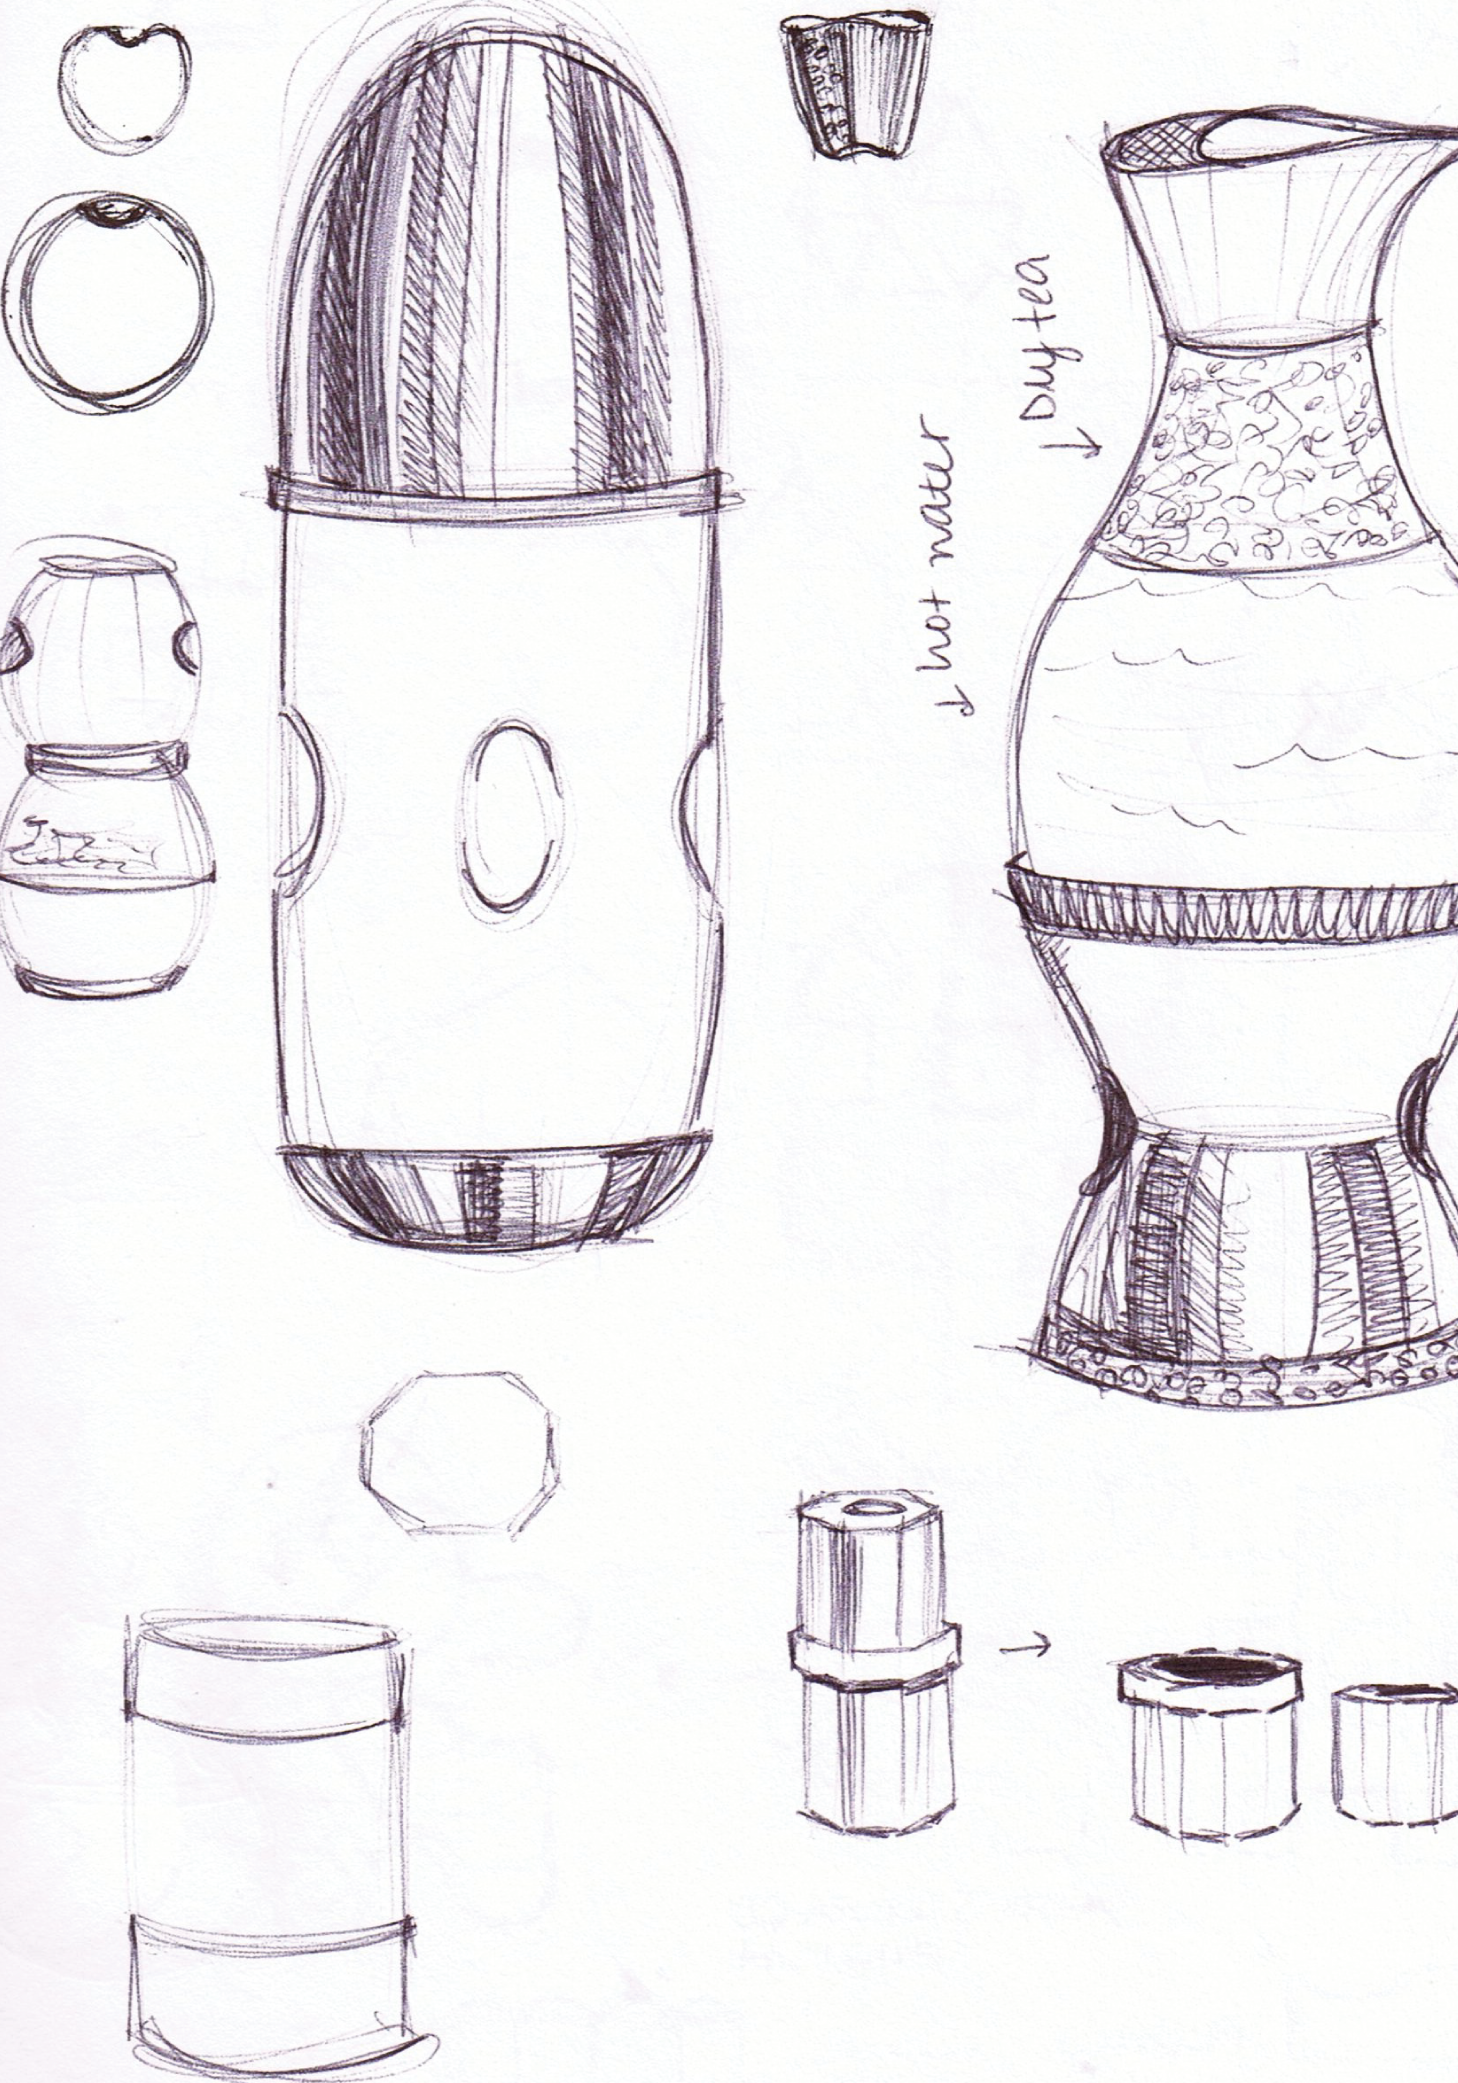 Dry tea
hot water